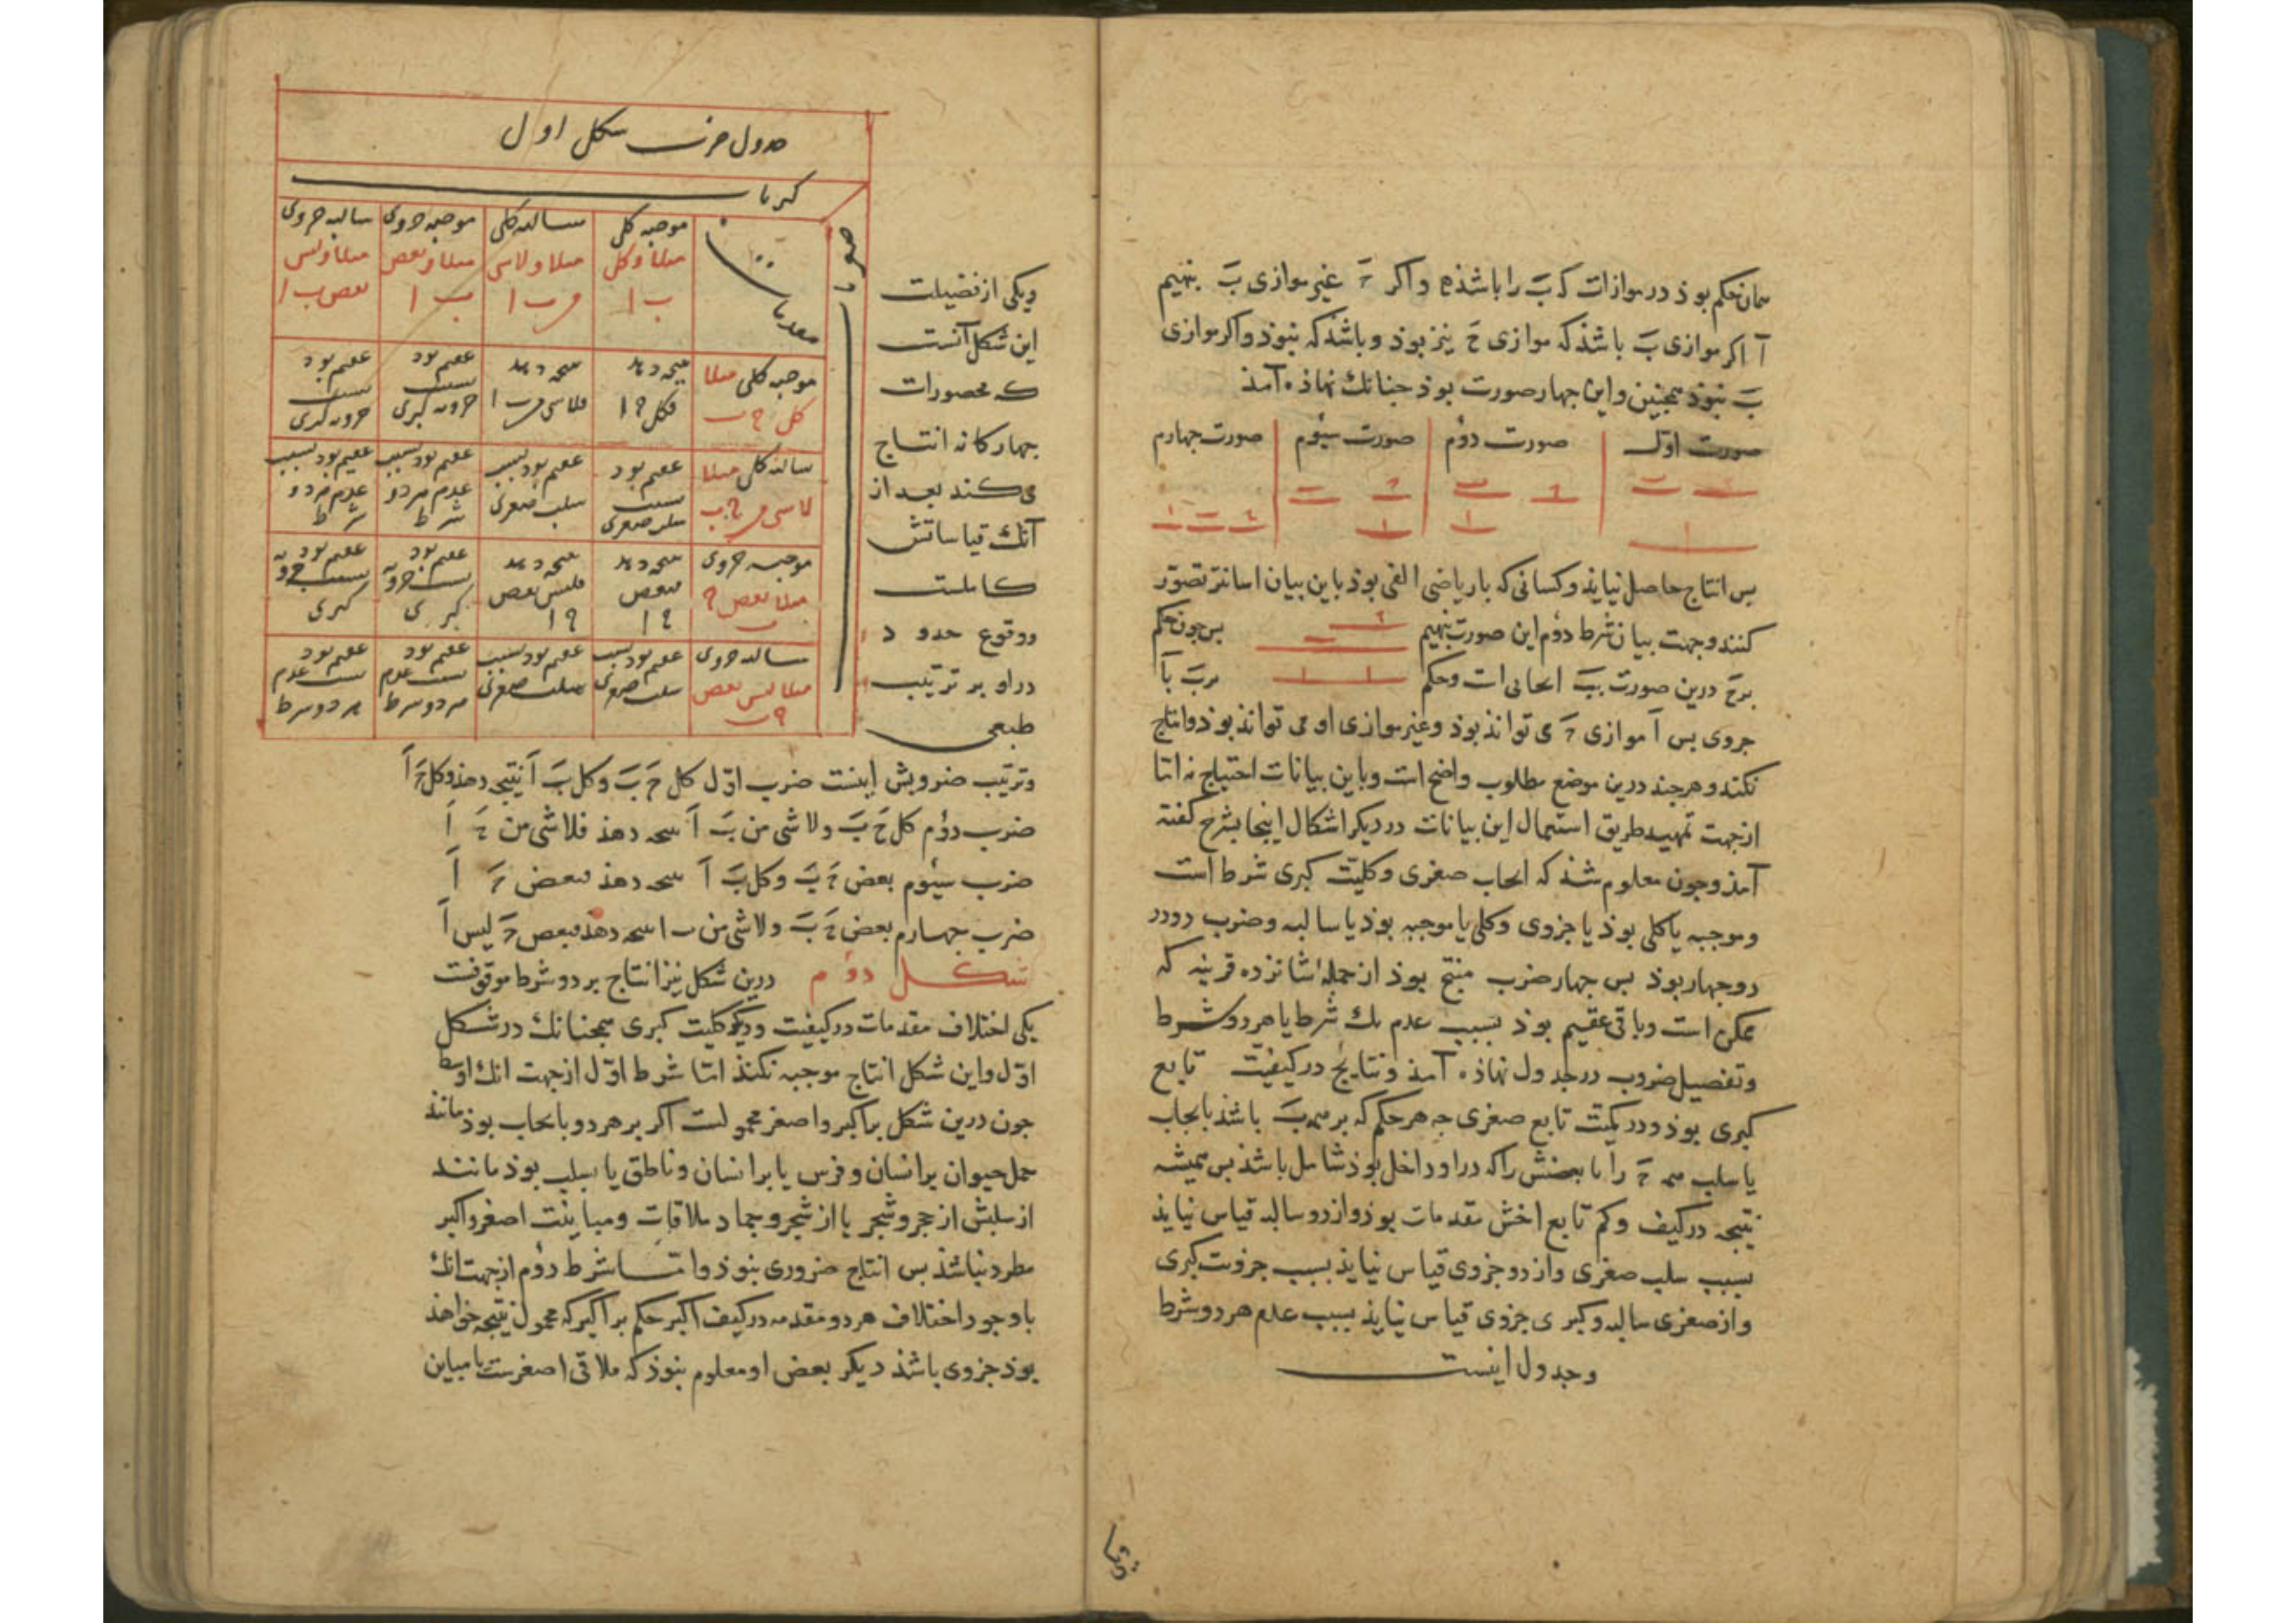 همان حکم بوذ در موازات که بَ را باشذ و اکر حَ غیر موازی بَ نهیم
آ اکر موازی بَ باشذ که موازی حَ نیز بوذ و باشذ که نبوذ و اکر موازی
بَ نبوذ همجنین و این جهار صورت بوذ جنانک نهاذه آمذ
صورت اوّل صورت دوُم صورت سیوُم صورت جهارم
بس انتاج حاصل نیایذ و کسانی که با ریاضی الفی بوذ باین بیان اسانتر تصوّر
کنند و جهت بیان شرط دوُم این صورت بنهیم بس جون حکم
برحَ درین صورت ببَ ایجابی است و حکم برب بآ
جزوی بس آ موازی حَ می توانذ بوذ و غیر موازی او می توانذ بوذ و انتاج
نکند و هرجند درین موضع مطلوب واضح است و باین بیانات احتیاج نه اما
از جهت تمهید طریق استعمال این بیانات در دیکر اشکال اینجا بشرح کفته
آمذ و جون معلوم شذ که ایجاب صغری و کلیّت کبری شرط است
و موجبه یا کلی بوذ یا جزوی و کلی یا موجبه بوذ یا سالبه و ضرب دو در
دو جهار بوذ بس جهار ضرب منتج بوذ از جمله شانزده قرینه که
ممکن است و باقی عقیم بوذ بسبب عدم یک شرط یا هر دو شرط
و تفصیل ضروب در جدول نهاذه آمذ و نتایج در کیفیّت تابع
کبری بوذ و در کمیّت تابع صغری جه هر حکم که بر همه بَ باشذ بایجاب
یا سلب همه حَ را یا بعضش را که در او داخل بوذ شامل باشذ بس همیشه
نتیجه در کیف و کم تابع اخسّ مقدمات بوذ و از دو سالبه قیاس نیایذ
بسبب سلب صغری و از دو جزوی قیاس نیایذ بسبب جزویت کبری
و از صغری سالبه و کبری جزوی قیاس نیایذ بسبب عدم هر دو شرط
و جدول اینست
جدول ضرب شکل اول
کبریا
صغریا
مقدمات
موجبه کلی سالبه کلی موجبه جزوی سالبه جزوی
مثلا وکل مثلا ولاشی مثلا وبعض مثلا ولیس
ب ا من ب ا ب ا بعض ب ا
موجبه کلی مثلا نتیجه دهد نتیجه دهد عقیم بود عقیم بود
کل ح ب فکل ح ا فلاشی من ح ا بسبب جزویه کبری بسبب جزویه کبری
سالبه کلی مثلا عقیم بود عقیم بود بسبب عقیم بود بسبب عقیم بود بسبب
لاشی من ح ب بسبب سلب صغری سلب صغری عدم هر دو شرط عدم هر دو شرط
موجبه جزوی نتیجه دهد نتیجه دهد عقیم بود عقیم بود
مثلا بعض ح ب فبعض ح ا فلیس بعض ح ا بسبب جزویه کبری بسبب جزویه کبری
سالبه جزوی عقیم بود بسبب عقیم بود بسبب عقیم بود عقیم بود
مثلا لیس بعض ح ب سلب صغری سلب صغری بسبب عدم هر دو شرط بسبب عدم هر دو شرط
و یکی از فضیلت
این شکل آنست
که محصورات
جهارکانه انتاج
می کند بعد از
آنک قیاساتش
کاملست
و وقوع حدود
در او بر ترتیب
طبعی
و ترتیب ضروبش اینست ضرب اوّل کل حَ بَ و کل بَ آ نتیجه دهذ و کل حَ آ
ضرب دوُم کل حَ بَ و لا شی من بَ آ نتیجه دهذ فلا شی من حَ آ
ضرب سیوُم بعض حَ بَ و کل بَ آ نتیجه دهذ فبعض حَ آ
ضرب جهارم بعض حَ بَ و لا شی من ب ا نتیجه دهذ فبعض حَ لیس آ
شکل دوُم درین شکل نیز انتاج بر دو شرط موقوفست
یکی اختلاف مقدمات در کیفیت و دیکر کلیت کبری همجنانک در شکل
اوّل و این شکل انتاج موجبه نکنذ امّا شرط اوّل از جهت انک اوسط
جون درین شکل بر اکبر و اصغر محمولست اکر بر هر دو بایجاب بوذ مانند
حمل حیوان بر انسان و فرس یا بر انسان و ناطق یا بسلب بوذ مانند
از سلبش از حجر و شجر یا از شجر و جماد ملاقات و مباینت اصغر و اکبر
مطرد نباشذ بس انتاج ضروری نبوذ و امّا شرط دوُم از جهت انک
با وجود اختلاف هر دو مقدمه در کیف اکر حکم بر اکبر که محمول نتیجه خواهذ
بوذ جزوی باشذ دیکر بعض او معلوم نبوذ که ملاقی اصغرست یا مباین